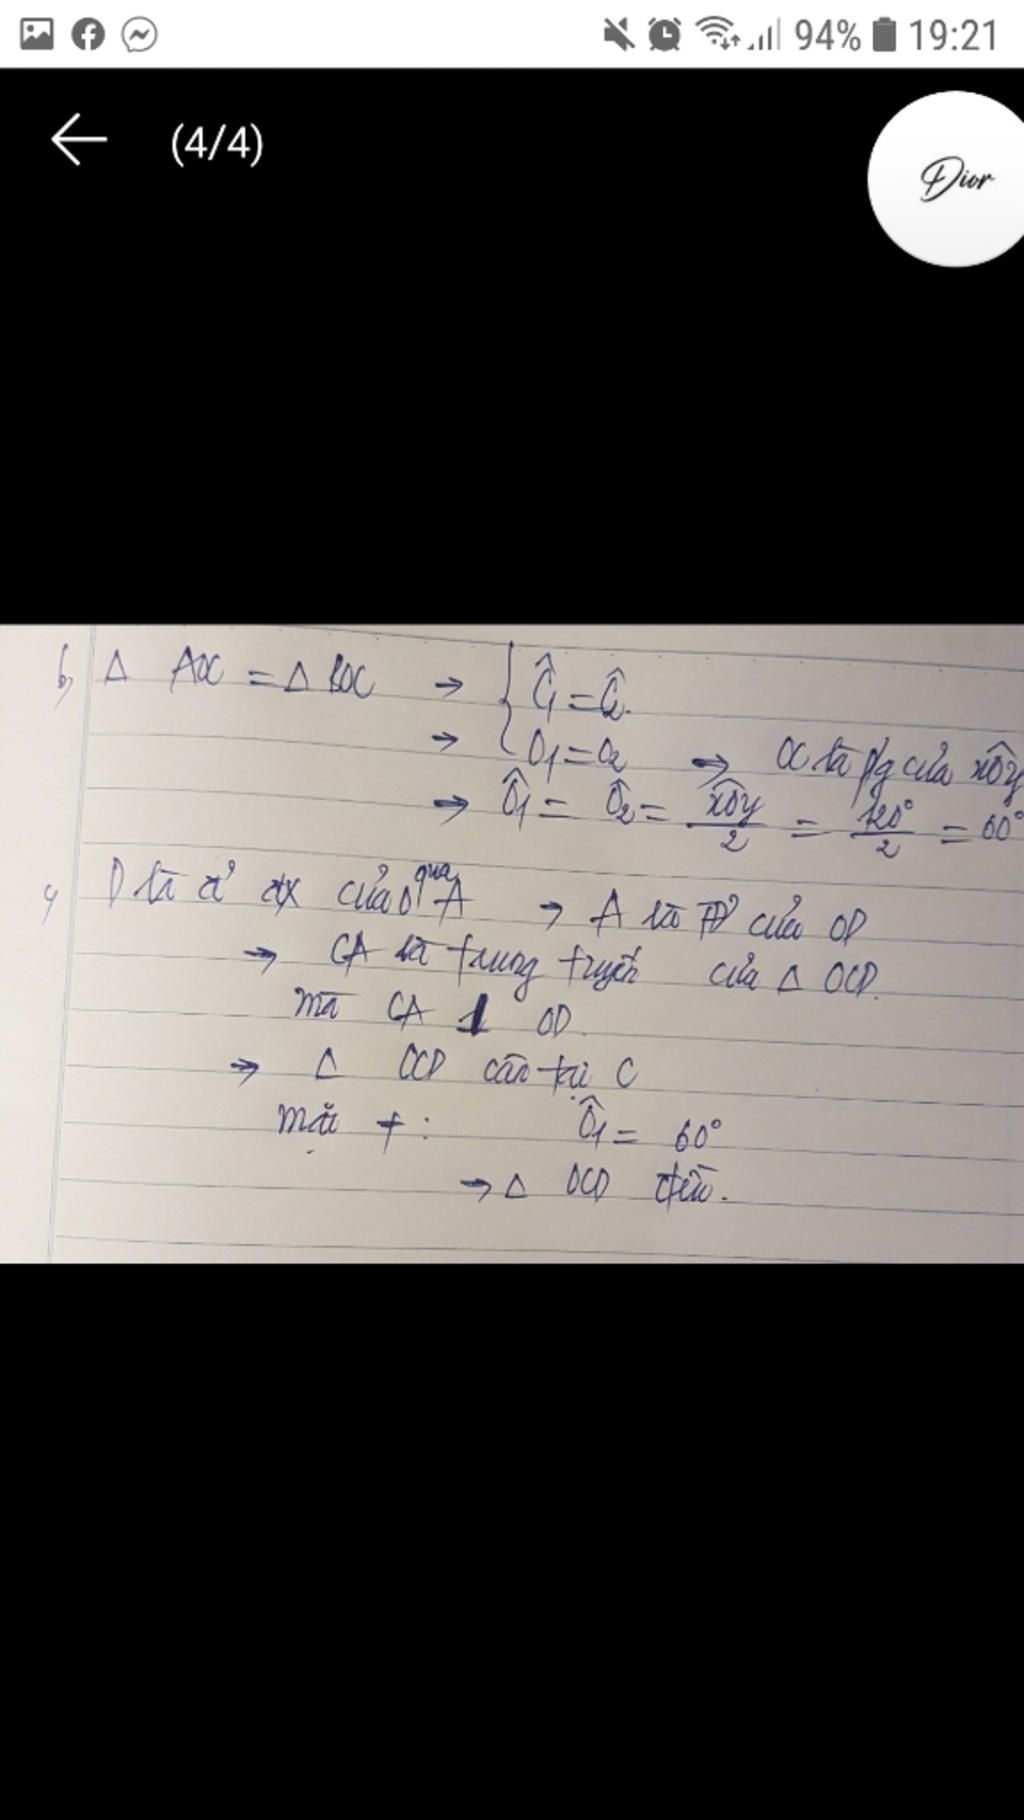 94% 19:21
(4/4)
Dior
b, Δ AOC = Δ BOC → { Ĉ1 = Ĉ2.
→ O1 = O2 → OC là pg của xÔy
→ Ô1 = Ô2 = xÔy/2 = 120°/2 = 60°
c, D là đ' đx của O qua A → A là TĐ' của OD
→ CA là trung tuyến của Δ OCD.
mà CA ⊥ OD.
→ Δ OCD cân tại C
Mặt ≠ : Ô1 = 60°
→ Δ OCD đều.